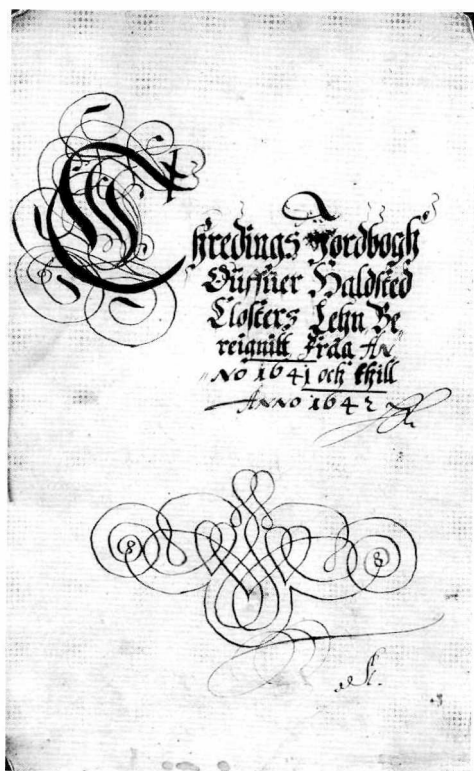 Thredings Jordbogh
Offuer Haldsted
Closters Lehn Be
reignitt Fraa An
no 1641 och thill
Anno 1642